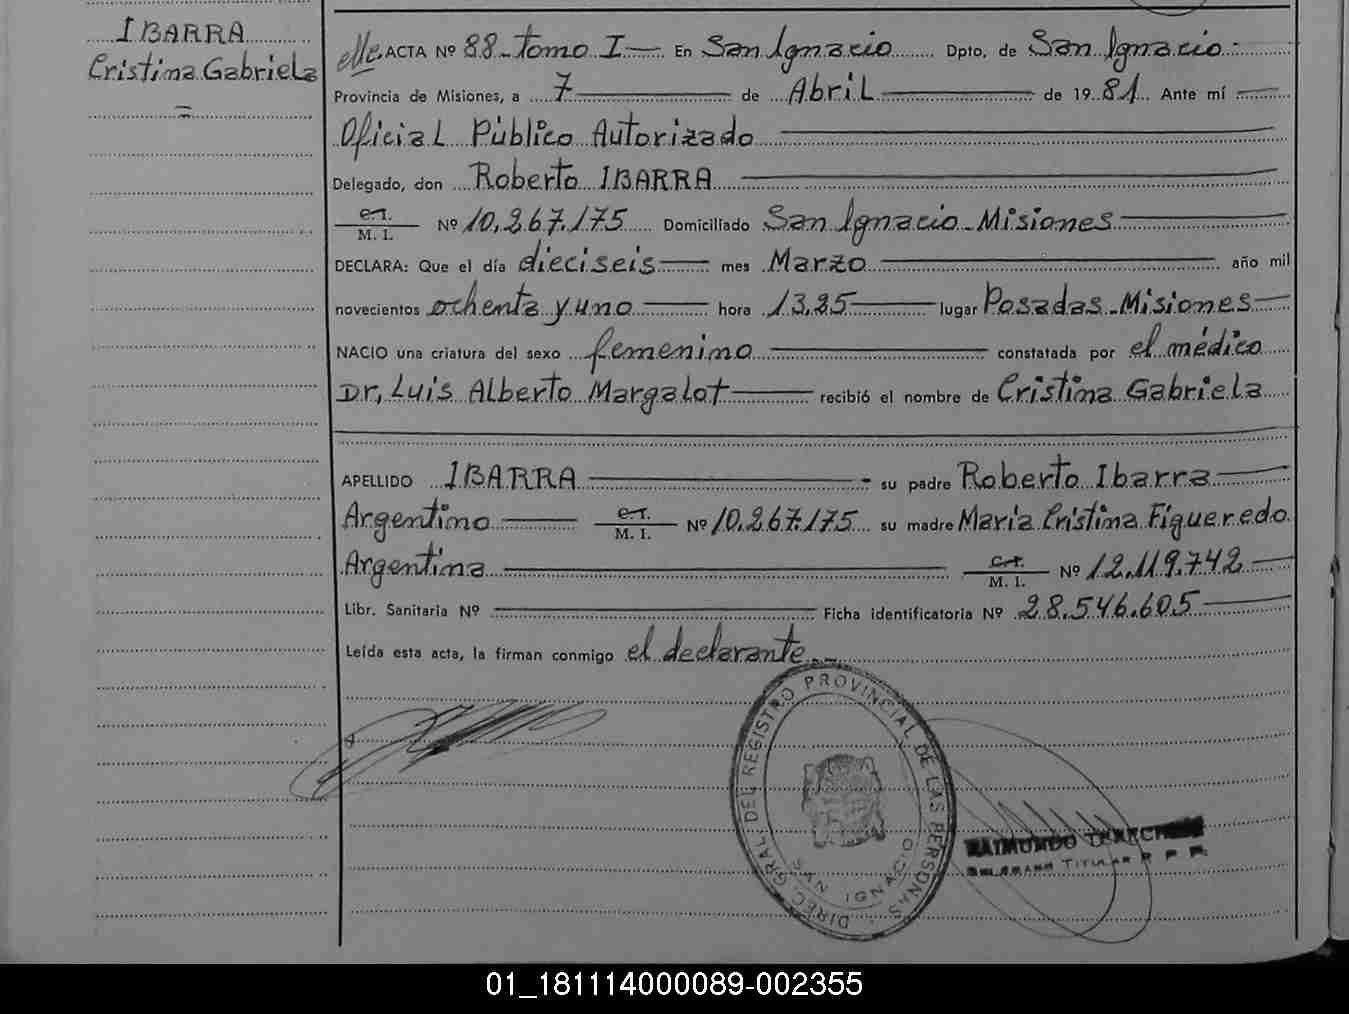 IBARRA
Cristina Gabriela
ACTA Nº 88 - Tomo I — En San Ignacio Dpto, de San Ignacio
Provincia de Misiones, a 7 de Abril de 1981 Ante mí
Oficial Público Autorizado
Delegado, don Roberto IBARRA
C.I.
M. I. Nº 10.267.175 Domiciliado San Ignacio - Misiones
DECLARA: Que el día dieciseis mes Marzo año mil
novecientos ochenta y uno hora 13,25 lugar Posadas - Misiones
NACIO una criatura del sexo femenino constatada por el médico
Dr, Luis Alberto Margalot recibió el nombre de Cristina Gabriela
APELLIDO IBARRA su padre Roberto Ibarra
Argentino C.I. M. I. Nº 10.267.175 su madre María Cristina Figueredo
Argentina C.I. M. I. Nº 12.119.742
Libr. Sanitaria Nº Ficha identificatoria Nº 28.546.605
Leída esta acta, la firman conmigo el declarante
DIREC. GRAL. DEL REGISTRO PROVINCIAL DE LAS PERSONAS
SAN IGNACIO
RAIMUNDO
TITULAR
01_181114000089-002355